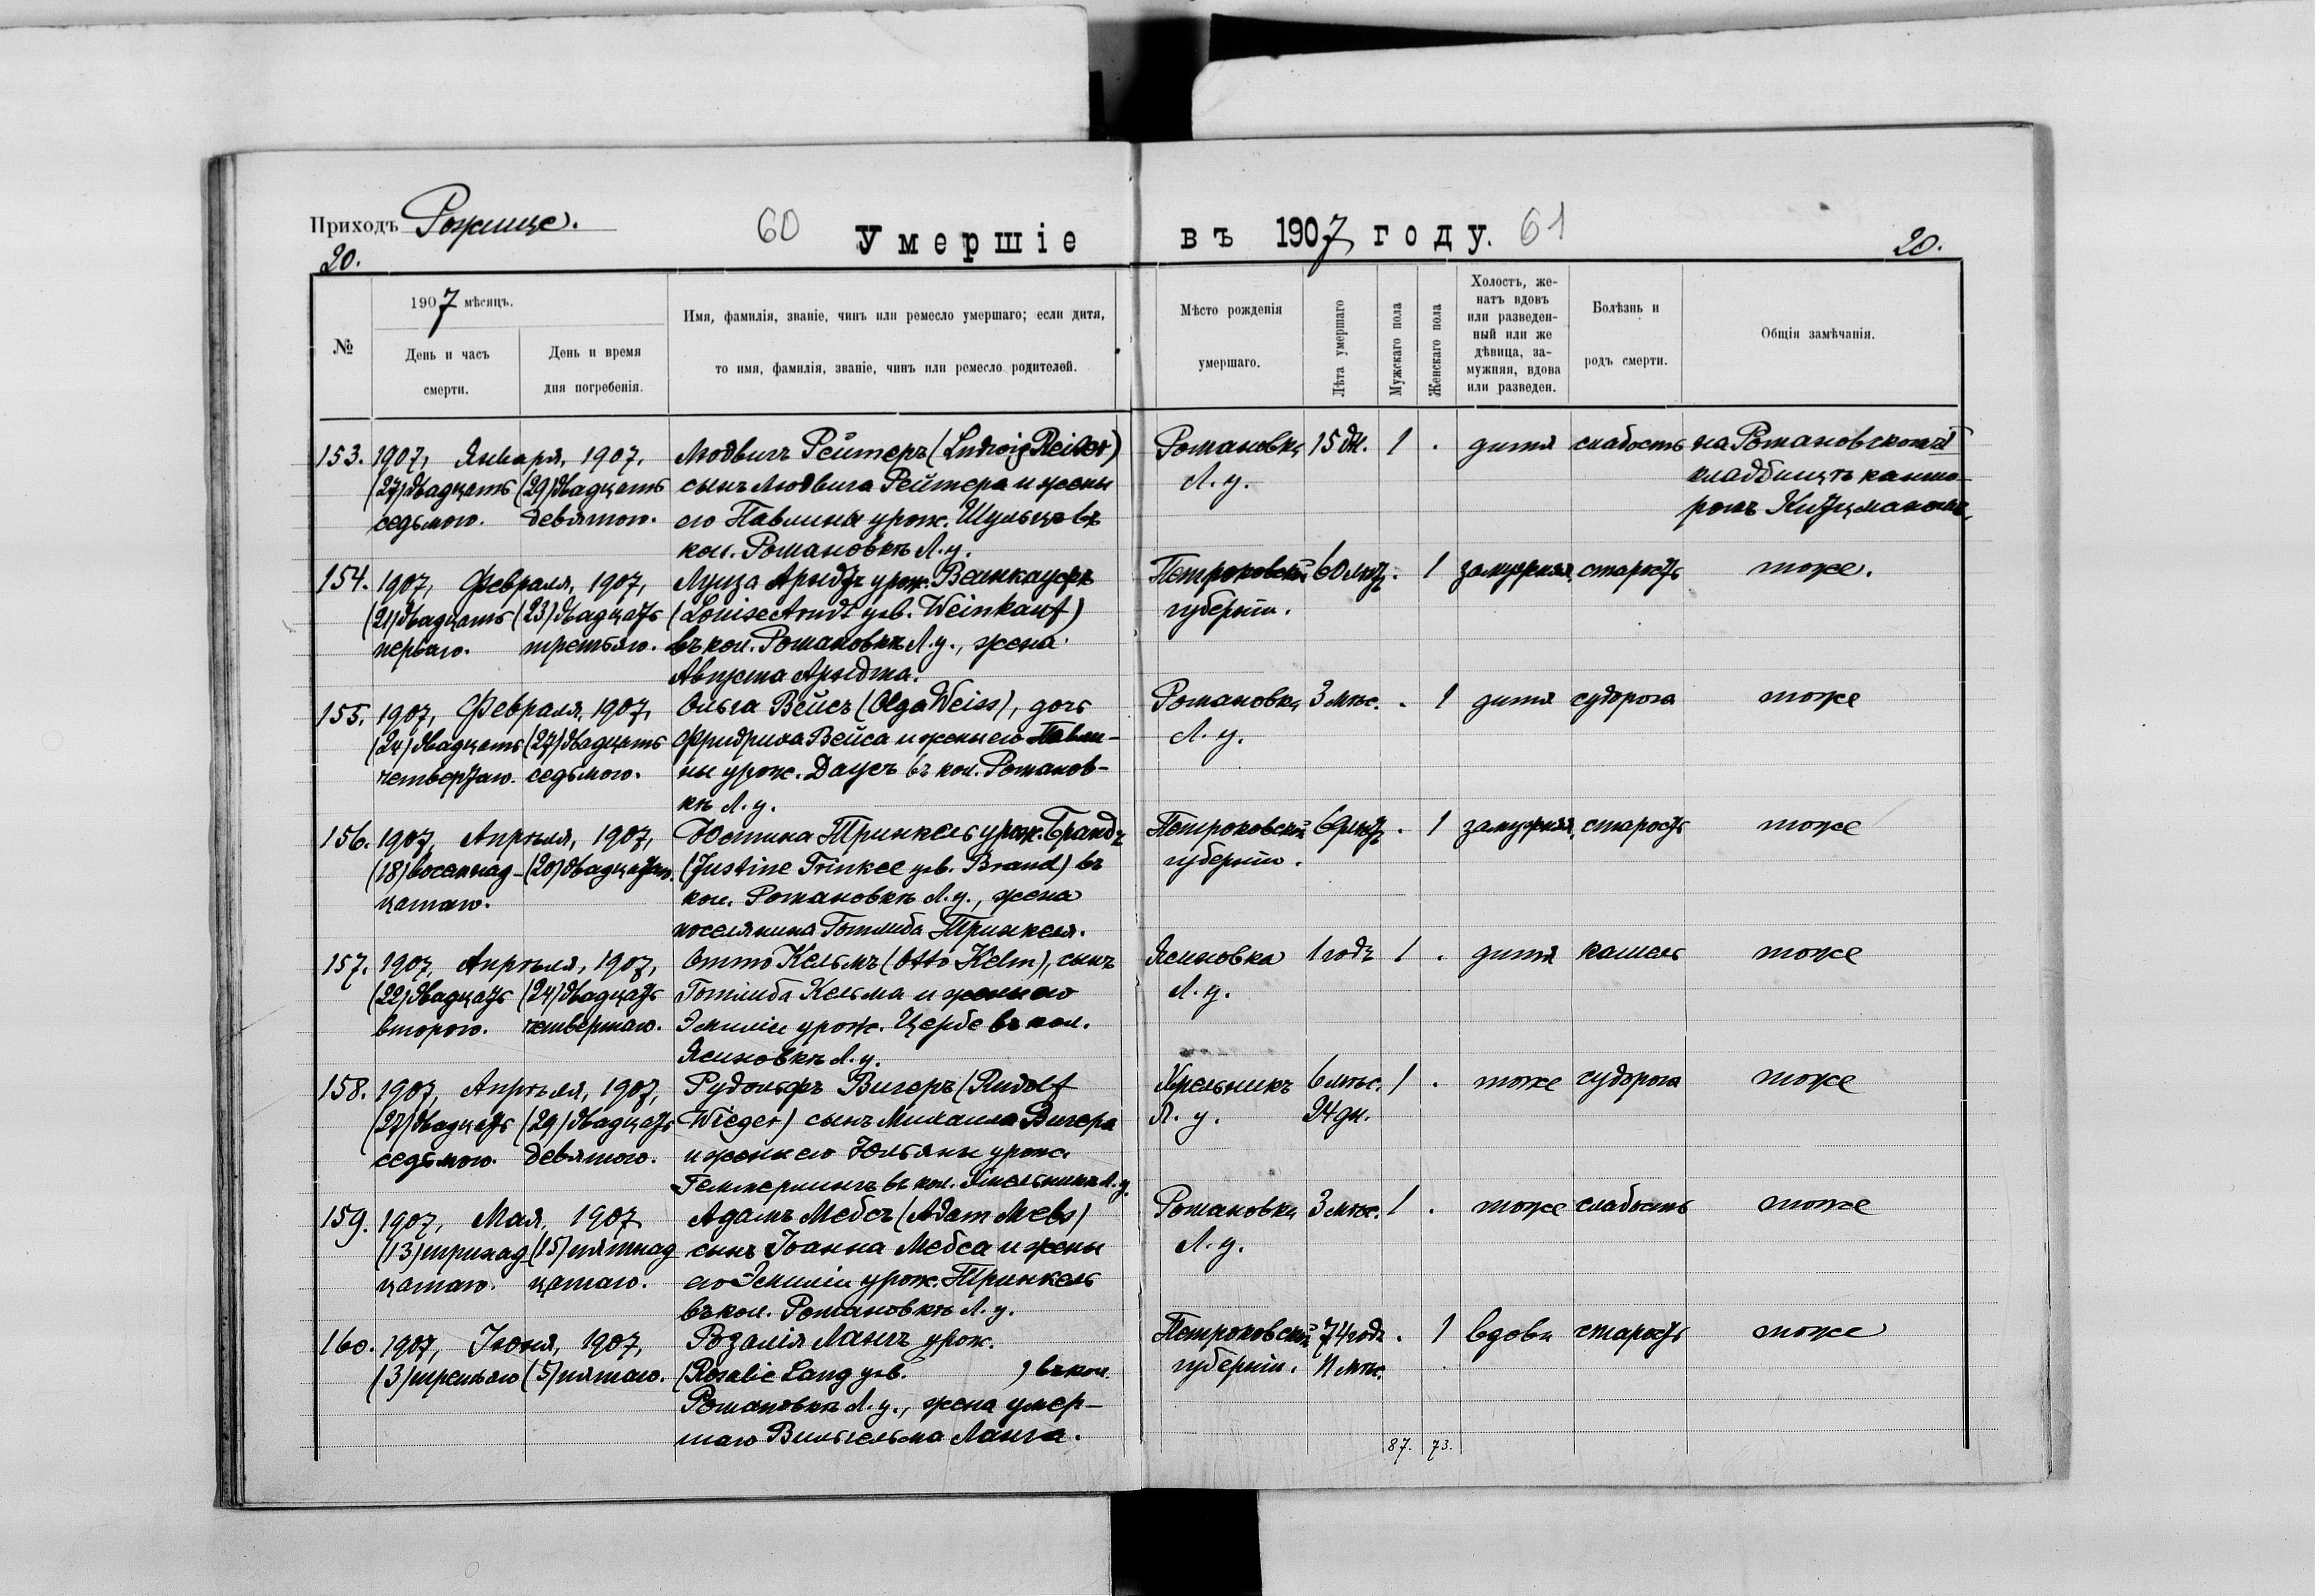 Приходъ Рожище.
60
Умершіе
въ 1907 году.
61
20.
20.
№
1907 мѣсяцъ.
День и часъ смерти.
День и время дня погребенія.
Имя, фамилія, званіе, чинъ или ремесло умершаго; если дитя,
то имя, фамилія, званіе, чинъ или ремесло родителей.
Мѣсто рожденія умершаго.
Лѣта умершаго
Мужскаго пола
Женскаго пола
Холостъ, же-
натъ вдовъ
или разведен-
ный или же
дѣвица, за-
мужняя, вдова
или разведен.
Болѣзнь и родъ смерти.
Общія замѣчанія.
153. 1907, Января, 1907, Людвигъ Рейтеръ (Ludwig Reiter) Романовка 15 дн. 1 . дитя слабость на Романовскомъ
(27) двадцать (29) двадцать сынъ Людвига Рейтера и жены Л. у. кладбищѣ канто-
седьмого. девятого. его Павлины урож. Шульцъ въ ромъ Китцманомъ,
кол. Романовкѣ Л. у.
154. 1907, Февраля, 1907, Луиза Арндтъ урож. Веинкауфъ Петроковской 60 лѣтъ . 1 замужняя старость тоже.
(21) двадцать (23) двадцать (Louise Arndt geb. Weinkauf) губерніи.
перваго. третьяго. въ кол. Романовкѣ Л. у., жена
Августа Арндта.
155. 1907, Февраля, 1907, Ольга Вейсъ (Olga Weiss), дочь Романовка 3 мѣс. . 1 дитя судорога тоже
(24) двадцать (27) двадцать Фридриха Вейса и жены его Павли- Л. у.
четвертаго. седьмого. ны урож. Даусъ въ кол. Романов-
кѣ Л. у.
156. 1907, Апрѣля, 1907, Юстина Тринкель урож. Брандъ Петроковской 69 лѣтъ . 1 замужняя старость тоже
(18) восемнад- (20) двадцатаго. (Justine Trinkel geb. Brand) въ губерніи.
цатаго. кол. Романовкѣ Л. у., жена
поселянина Готлиба Тринкеля.
157. 1907, Апрѣля, 1907, Отто Кельмъ (Otto Kelm), сынъ Ясиновка 1 годъ 1 . дитя кашель тоже
(22) двадцать (24) двадцать Готлиба Кельма и жены его Л. у.
второго. четвертаго. Эмиліи урож. Цербе въ кол.
Ясиновкѣ Л. у.
158. 1907, Апрѣля, 1907, Рудольфъ Вигеръ (Rudolf Хмельникъ 6 мѣс. 1 . тоже судорога тоже
(27) двадцать (29) двадцать Wieger) сынъ Михаила Вигера Л. у. 24 дн.
седьмого. девятого. и жены его Юльяны урож.
въ кол. Хмельникѣ Л. у.
159. 1907, Мая, 1907 Адамъ Мебсъ (Adam Mebs) Романовка 3 мѣс. 1 . тоже слабость тоже
(13) тринад- (15) пятнад- сынъ Іоанна Мебса и жены Л. у.
цатаго. цатаго. его Эмиліи урож. Тринкель
въ кол. Романовкѣ Л. у.
160. 1907, Іюня, 1907, Розалія Лангъ урож. Петроковской 74 годъ . 1 вдова старость тоже
(3) третьяго (5) пятаго. (Rosalie Lang geb. ) въ кол. губерніи. 11 мѣс.
Романовкѣ Л. у., жена умер-
шаго Вильгельма Ланга.
87. 73.